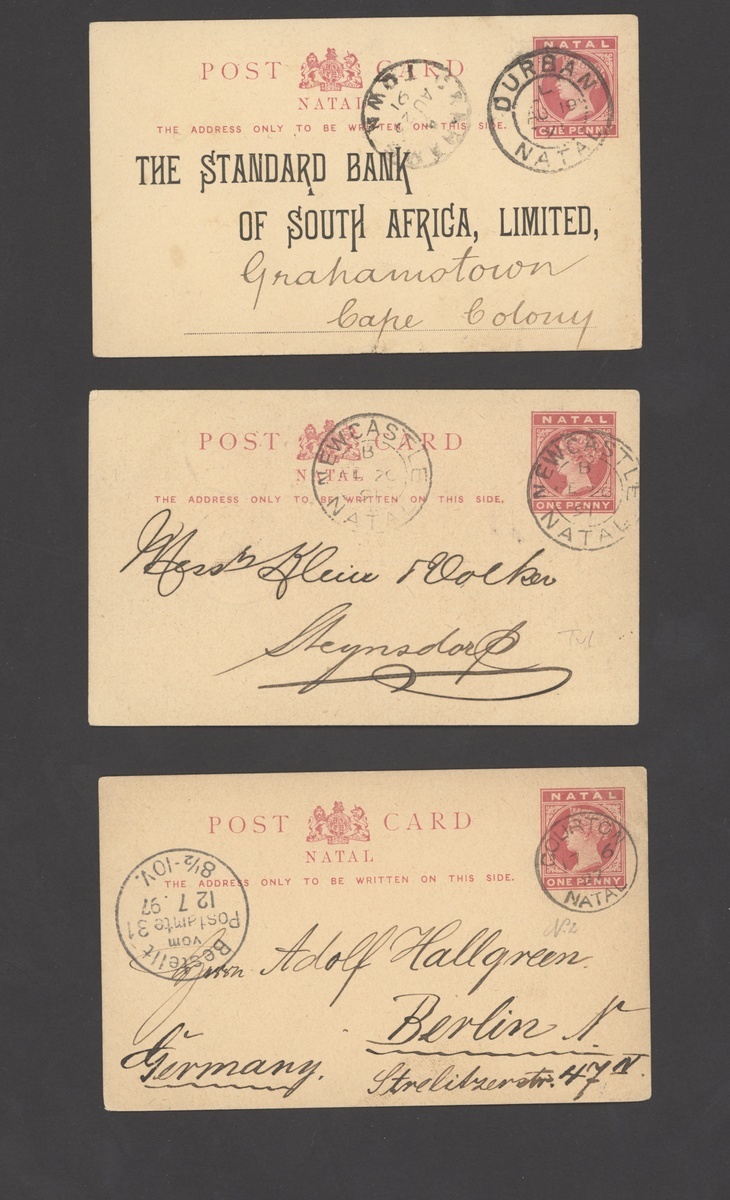 POST CARD
NATAL
NATAL
ONE PENNY
DURBAN
NATAL
AU 4
91
THE ADDRESS ONLY TO BE WRITTEN ON THIS SIDE.
THE STANDARD BANK
OF SOUTH AFRICA, LIMITED,
Grahamstown
Cape Colony
POST CARD
NATAL
NATAL
ONE PENNY
NEWCASTLE
B
NATAL
NEWCASTLE
B
NATAL
THE ADDRESS ONLY TO BE WRITTEN ON THIS SIDE.
Messrs Klein & Volker
Steynsdorp
POST CARD
NATAL
NATAL
ONE PENNY
COURTON
6
NATAL
THE ADDRESS ONLY TO BE WRITTEN ON THIS SIDE.
Bestellt
vom
Postamte 31
12 7. 97
8½-10V.
Herrn Adolf Hallgreen.
Berlin N
Germany.
Strelitzerstr. 47 IV.